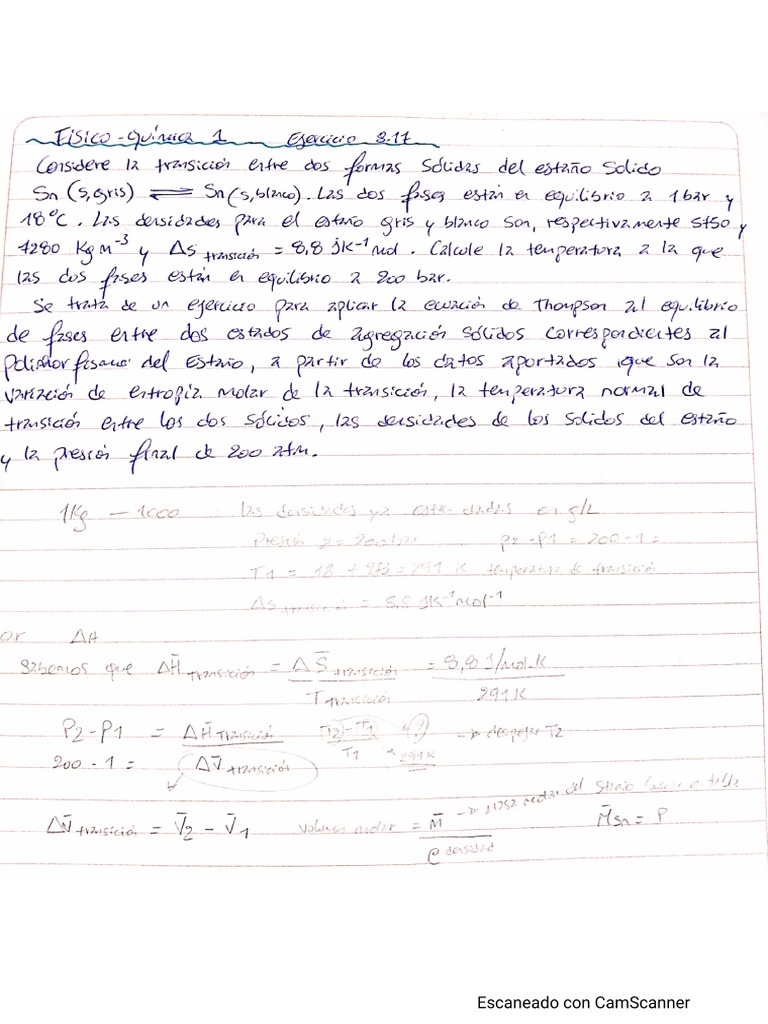 Físico-Química 1 Ejercicio 8.17
Considere la transición entre dos formas sólidas del estaño solido
Sn (s, gris) ⇌ Sn (s, blanco). Las dos fases están en equilibrio a 1 bar y
18°C. Las densidades para el estaño gris y blanco son, respectivamente 5750 y
7280 Kg m⁻³ y Δs transición = 8,8 jK⁻¹ mol. Calcule la temperatura a la que
las dos fases están en equilibrio a 200 bar.
Se trata de un ejercicio para aplicar la ecuación de Thompson al equilibrio
de fases entre dos estados de agregación sólidos correspondientes al
polimorfismo del estaño, a partir de los datos aportados, que son la
variación de entropía molar de la transición, la temperatura normal de
transición entre los dos sólidos, las densidades de los solidos del estaño
y la presión final de 200 atm.
1Kg — 1000 las densidades ya están dadas en g/L
Presión 2 = 200 bar P2 - P1 = 200 - 1 =
T1 = 18 + 273 = 291 K temperatura de transición
Δs transición = 8,8 JK⁻¹ mol⁻¹
or ΔH
Sabemos que ΔH̄ transición = ΔS̄ transición / T transición = 8,8 J/mol.K / 291 K
P2 - P1 = ΔH̄ transición / ΔV̄ transición T2 - T1 / T1 291K → despejar T2
200 - 1 =
ΔV̄ transición = V̄2 - V̄1 Volumen molar = M̄ / ρ densidad → masa molar del M̄sn = P